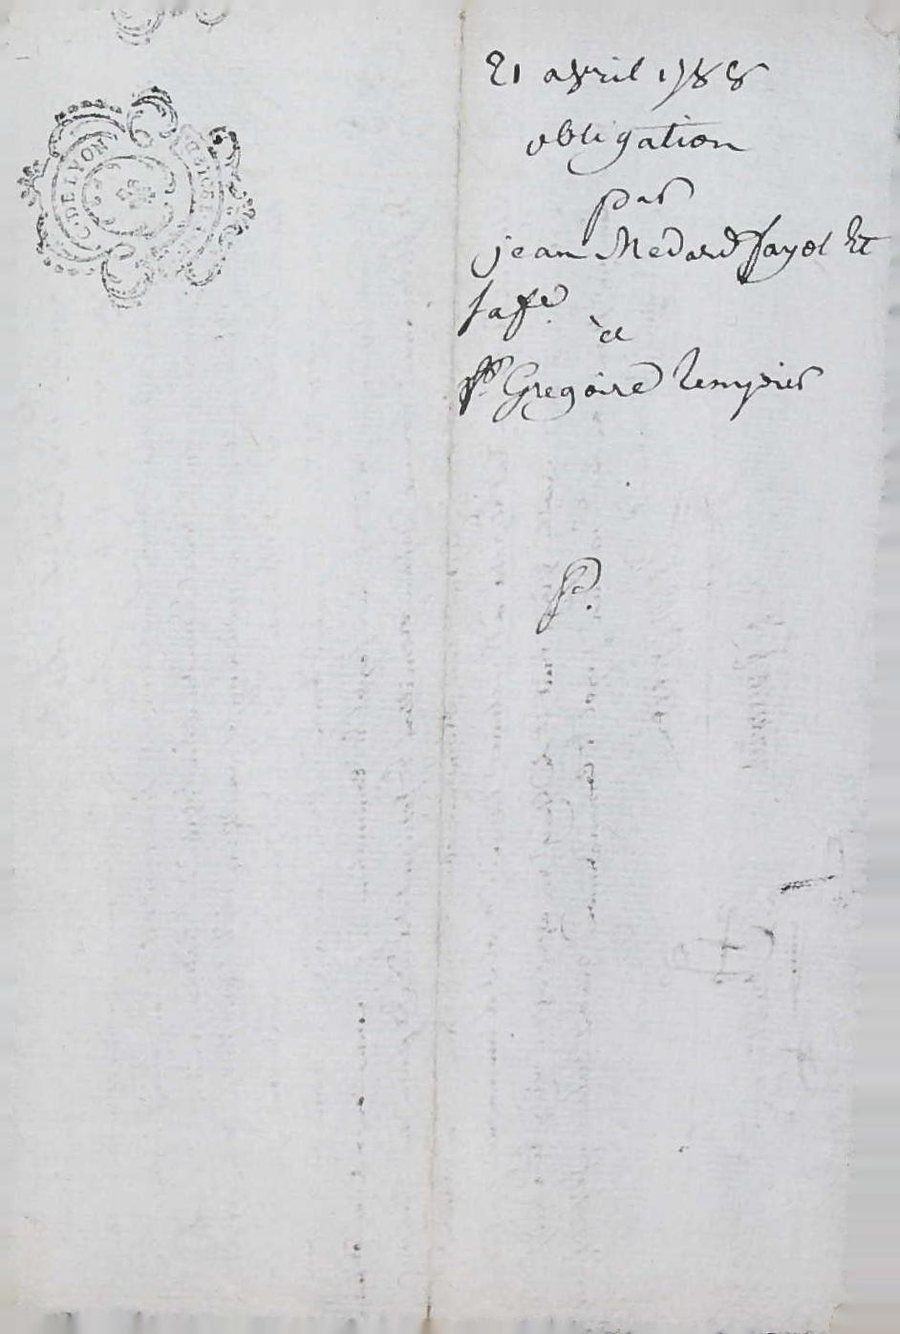 DE LYON
21 avril 1788
obligation
par
jean Medard fayol Et
sa fe
à
Sr Gregoire
P.